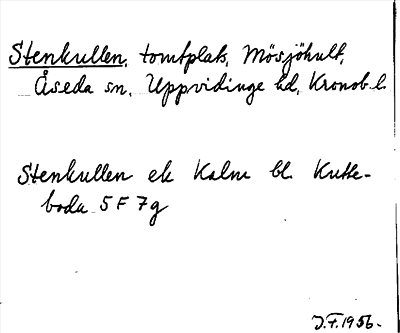 Stenkullen, tomtplats, Mösjöhult,
Åseda sn, Uppvidinge hd, Kronob. l.
Stenkullen ek Kalm bl. Kutte-
boda 5 F 7g
J.F. 1956.